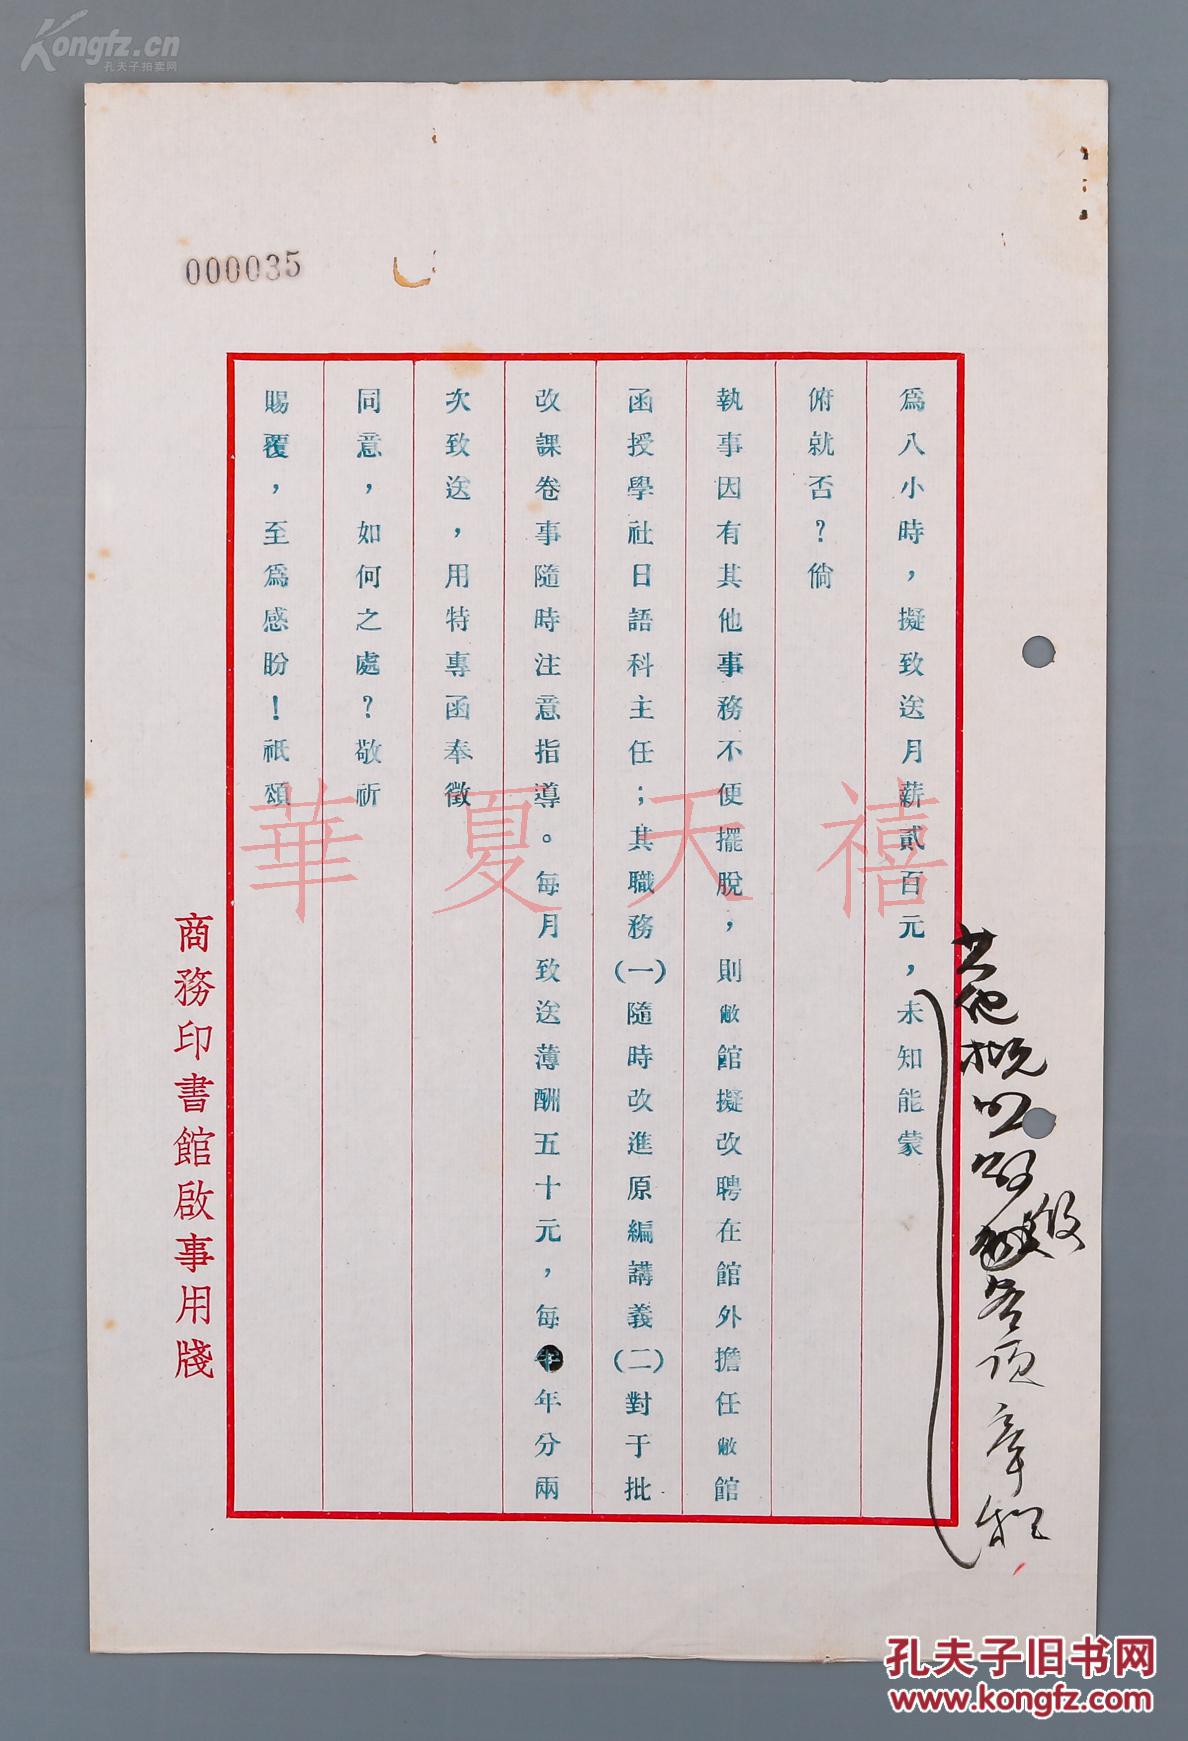 Kongfz.cn
孔夫子拍卖网
000035
爲八小時，擬致送月薪貳百元，未知能蒙
俯就否？倘
執事因有其他事務不便擺脫，則敝館擬改聘在館外擔任敝館
函授學社日語科主任；其職務(一)隨時改進原編講義(二)對于批
改課卷事隨時注意指導。每月致送薄酬五十元，每年分兩
次致送，用特專函奉徵
同意，如何之處？敬祈
賜覆，至爲感盼！祇頌
其他概照敝館各項章程
商務印書館啟事用牋
華夏天禧
孔夫子旧书网
www.kongfz.com